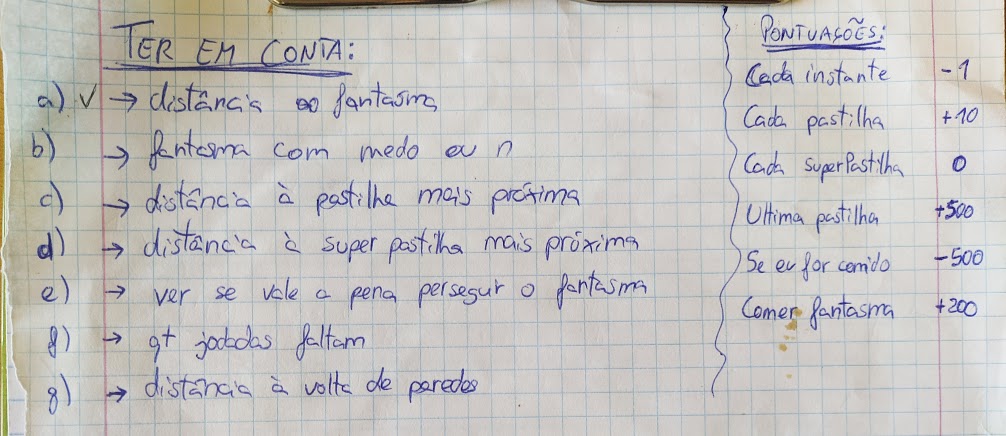 TER EM CONTA:
a) ✓ → distância ao fantasma
b) → fantasma com medo ou n
c) → distância à pastilha mais próxima
d) → distância à super pastilha mais próxima
e) → ver se vale a pena persegur o fantasma
f) → qt jodadas faltam
g) → distância à volta de paredes
PONTUAÇÕES:
Cada instante -1
Cada pastilha +10
Cada superPastilha 0
Ultima pastilha +500
Se eu for comido -500
Comer fantasma +200